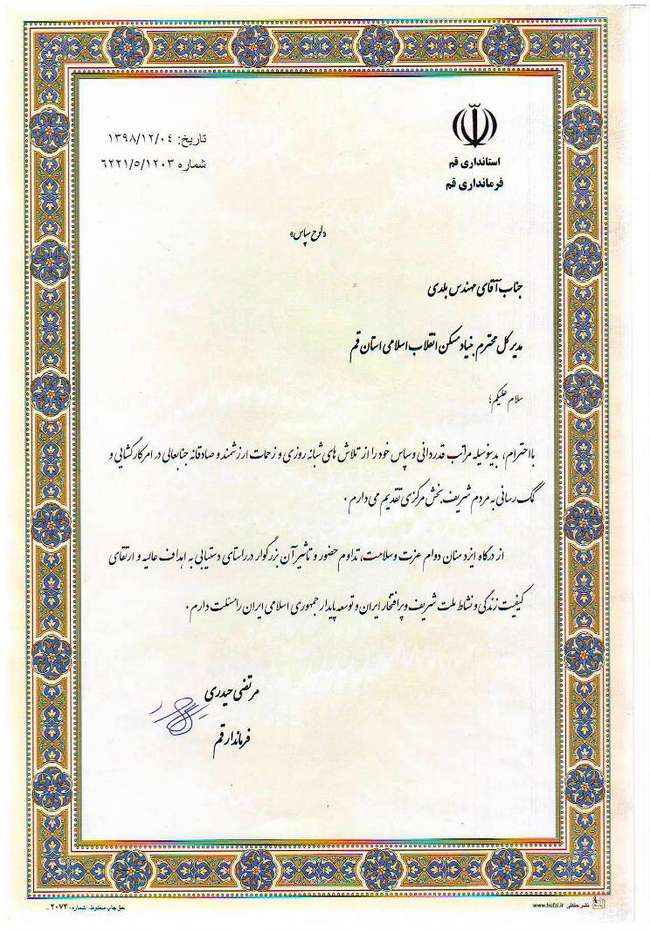 تاریخ: ۱۳۹۸/۱۲/۰۴
شماره ۶۲۲۱/۵/۱۲۰۳
استانداری قم
فرمانداری قم
«لوح سپاس»
جناب آقای مهندس بلدی
مدیرکل محترم بنیاد مسکن انقلاب اسلامی استان قم
سلام علیکم؛
بااحترام، بدینوسیله مراتب قدردانی و سپاس خود را از تلاش های شبانه روزی و زحمات ارزشمند و صادقانه جنابعالی در امر کارگشایی و
کمک رسانی به مردم شریف بخش مرکزی تقدیم می دارم.
از درگاه ایزد منان دوام عزت و سلامت، تداوم حضور و تاثیر آن بزرگوار در راستای دستیابی به اهداف عالیه و ارتقای
کیفیت زندگی و نشاط ملت شریف و پر افتخار ایران و توسعه پایدار جمهوری اسلامی ایران را مسئلت دارم.
مرتضی حیدری
فرماندار قم
حق چاپ محفوظ. شماره: ۲۰۷۳
www.hefzi.ir